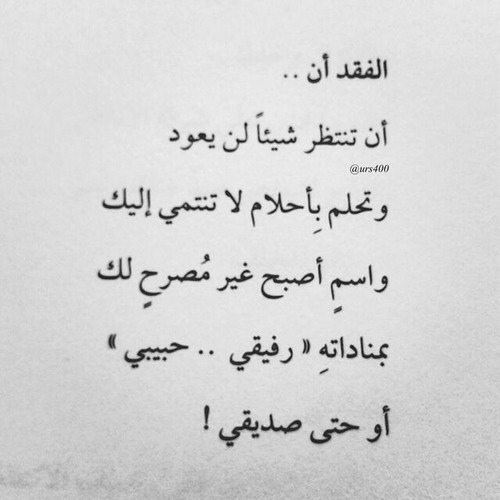 الفقد أن ..
أن تنتظر شيئاً لن يعود
@urs400
وتحلم بِأحلام لا تنتمي إليك
واسمٍ أصبح غير مُصرحٍ لك
بمناداتهِ « رفيقي .. حبيبي »
أو حتى صديقي !